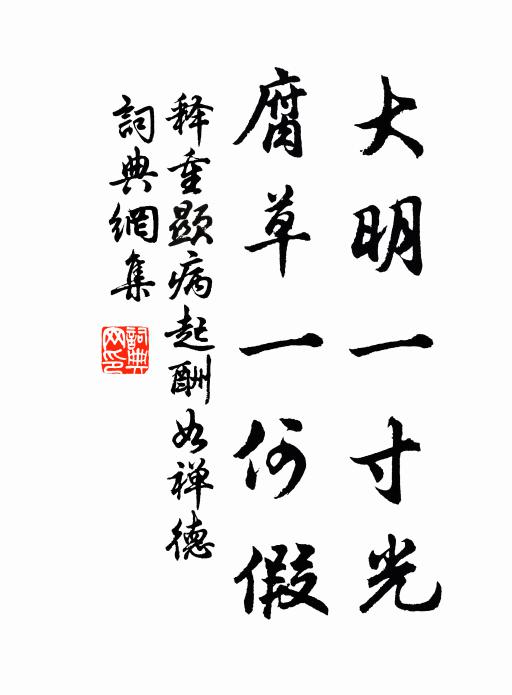 大明一寸光
腐草一何假
释重顯病起酬如禅德
詞典網集
詞典网印